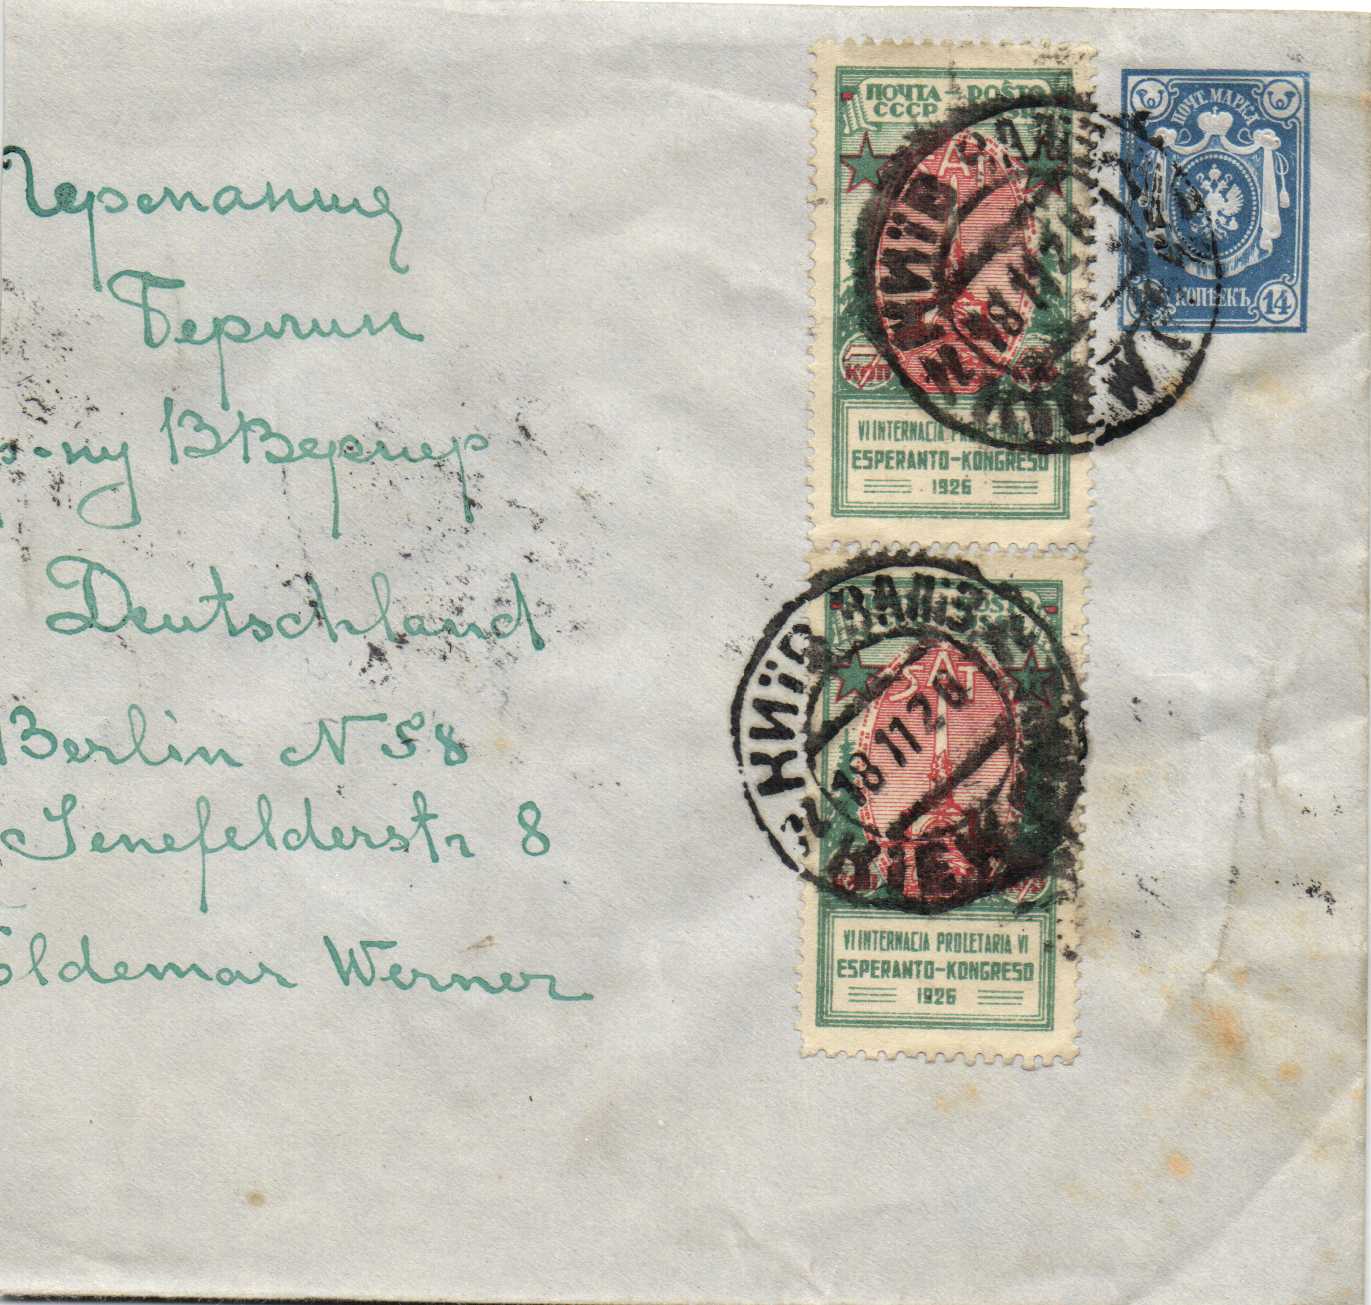 Германия
Берлин
р-ну В Вернер
Deutschland
Berlin N 58
Senefelderstr 8
oldemar Werner
ПОЧТА – POŜTO
СССР
SAT
КОП
VI INTERNACIA PROLETARIA
ESPERANTO–KONGRESO
1926
КИЇВ ВАЛІЗ
18 11 26
ПОЧТ. МАРКА
КОПѢЕКЪ 14
POŜTO
SAT
КИЇВ ВАЛІЗ
18 11 26
КІЕВ
VI INTERNACIA PROLETARIA VI
ESPERANTO–KONGRESO
1926